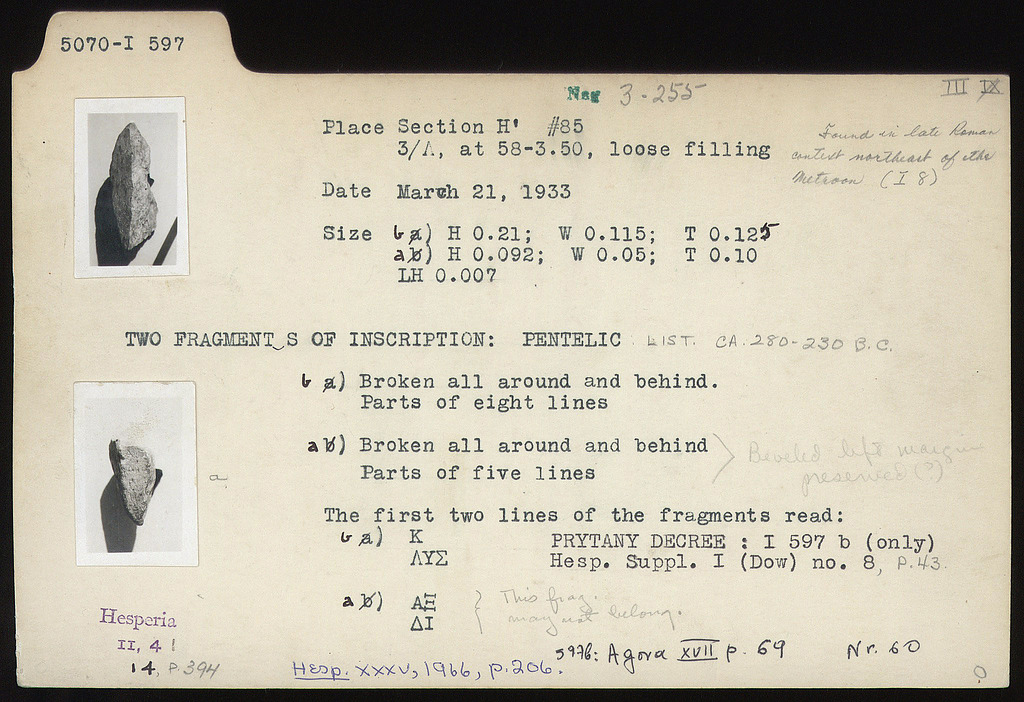 5070-I 597
Neg 3-255
III IX
Place Section H' #85
3/Λ, at 58-3.50, loose filling
Found in late Roman
context northeast of the
Metroon (I 8)
Date March 21, 1933
Size b a) H 0.21; W 0.115; T 0.125
a b) H 0.092; W 0.05; T 0.10
LH 0.007
TWO FRAGMENTS OF INSCRIPTION: PENTELIC LIST. CA. 280-230 B.C.
b a) Broken all around and behind.
Parts of eight lines
a b) Broken all around and behind
Parts of five lines
Beveled left margin
preserved (?)
a
The first two lines of the fragments read:
b a) Κ
ΛΥΣ
PRYTANY DECREE : I 597 b (only)
Hesp. Suppl. I (Dow) no. 8, P.43.
a b) ΑΞ
ΔΙ
This frag.
may not belong.
Hesperia
II, 4
14, P.394
Hesp. XXXV, 1966, p.206.
Agora XVII p. 69 Nr. 60